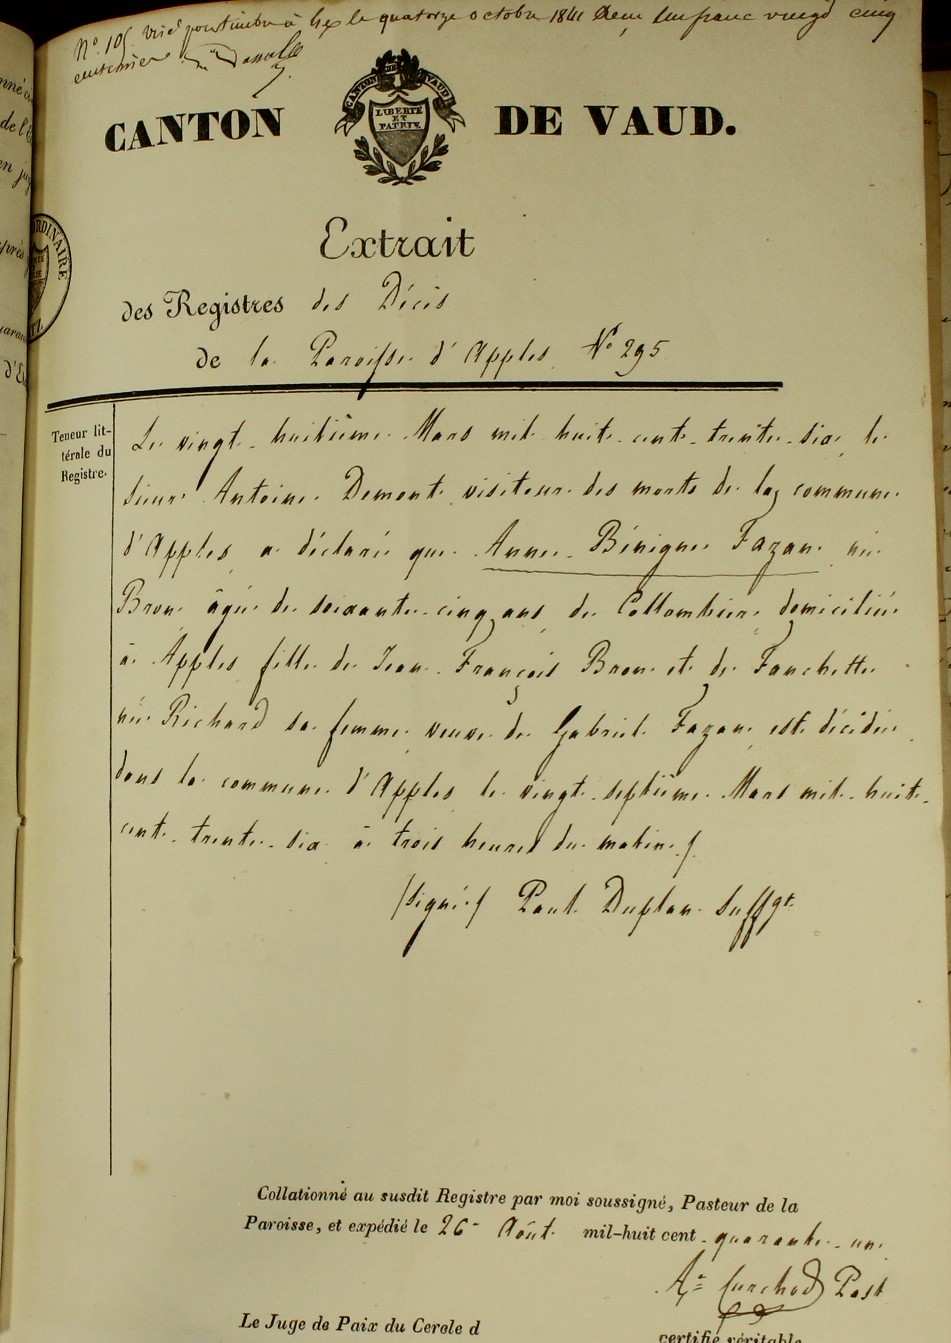 N.° 105. visé pour timbre à Gex le quatorze octobre 1841 Reçu un franc vingt cinq
centimes
CANTON DE VAUD
LIBERTÉ
ET
PATRIE
CANTON DE VAUD.
Extrait
des Registres des Décès
de la Paroisse d'Apples N° 295
Teneur lit-
térale du
Registre.
Le vingt-huitième Mars mil huit-cent-trente-six le
sieur Antoine Demont visiteur des morts de la commune
d'Apples a déclaré que Anne-Bénigne Fazan née
Bron âgée de soixante-cinq ans de Collombier domiciliée
à Apples fille de Jean-François Bron et de Fanchette
née Richard sa femme veuve de Gabriel Fazan est décédée
dans la commune d'Apples le vingt-septième Mars mil-huit-
cent-trente-six à trois heures du matin /
/signé/ Paul Duplan suffgt.
Collationné au susdit Registre par moi soussigné, Pasteur de la
Paroisse, et expédié le 26 Août mil-huit cent quarante-un
Curchod Past
Le Juge de Paix du Cercle d
certifie véritable
RDINAIRE